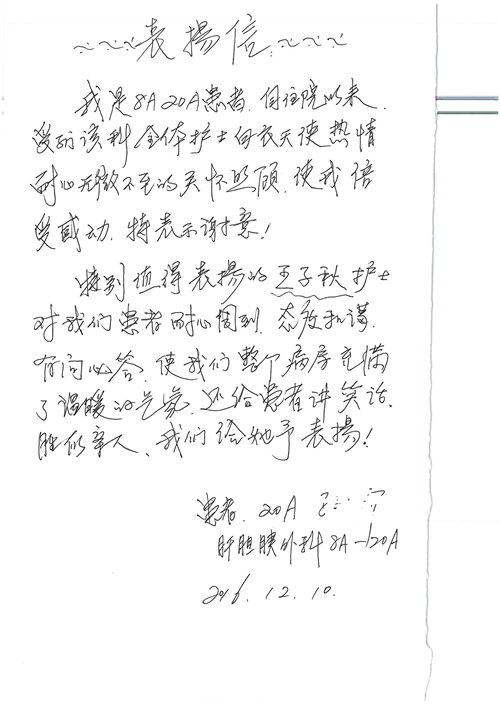 ~~~表揚信~~~
我是8A20A患者.自住院以来.
受到该科全体护士白衣天使热情
耐心无微不至的关怀照顾.使我倍
受感动.特表示谢意!
特别值得表揚的王子秋护士
对我们患者耐心周到.态度和谐.
有问必答.使我们整个病房充满
了温暖的气氛.还给患者讲笑话.
胜似亲人、我们给她予表揚!
患者.20A
肝胆胰外科8A-120A
2016.12.10.